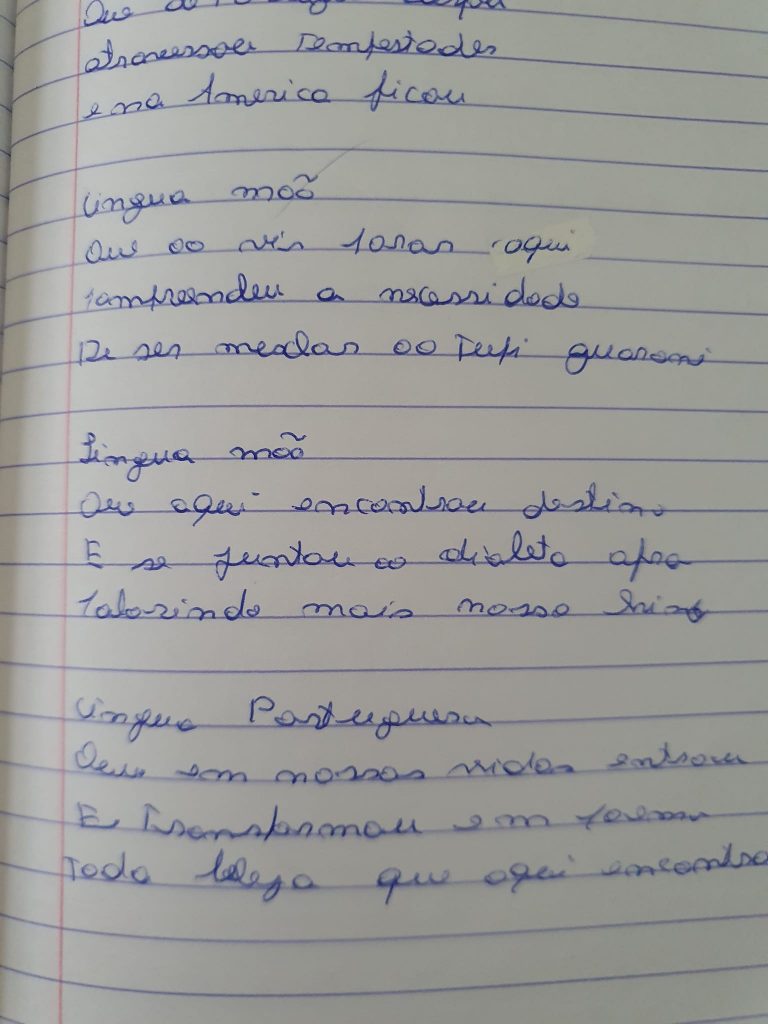 Que
atravessou Tempestades
e na America ficou
Língua mãõ
Que ao vir parar aqui
compreendeu a necessidade
De ser mesclar ao Tupi guarani
Língua mãõ
Que aqui encontrou destino
E se juntou ao dialeto afro
colorindo mais nosso
Língua Portuguesa
Que em nossas vidas entrou
E Transformou em poema
Toda beleza que aqui encontro